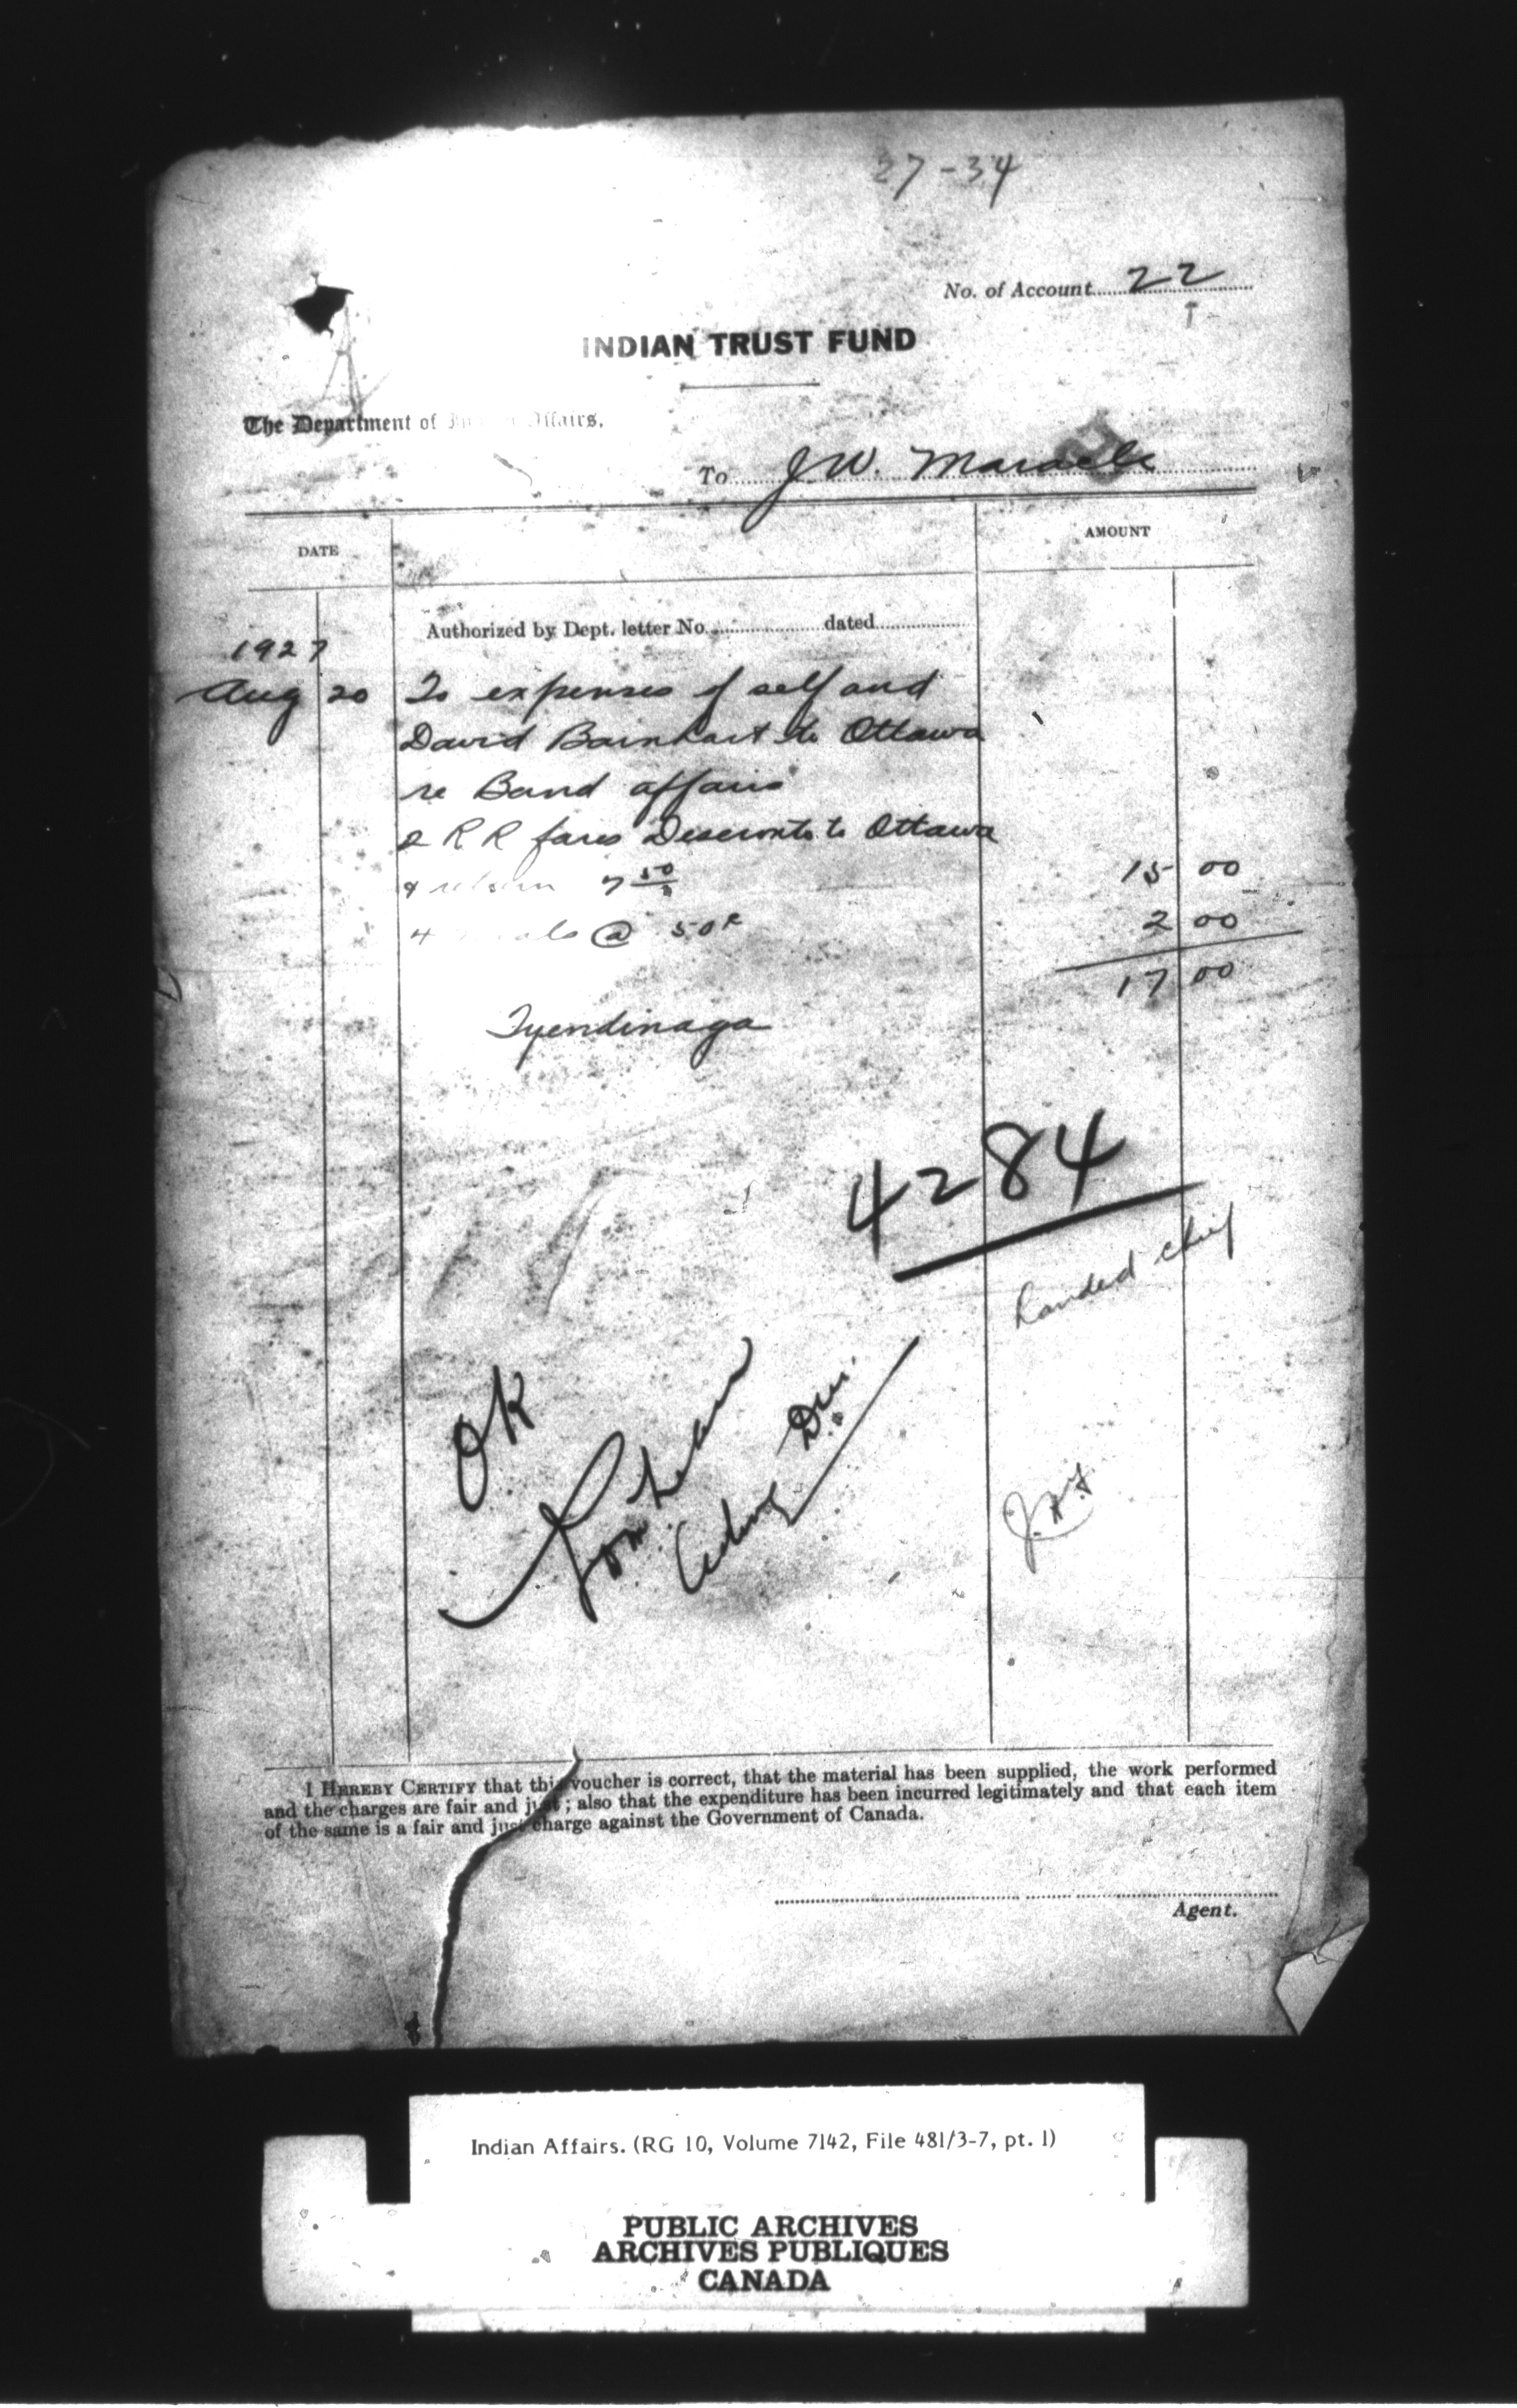 27-34
No. of Account 22
INDIAN TRUST FUND
The Department of Indian Affairs,
To J. W. Maracle
DATE
AMOUNT
Authorized by Dept. letter No. dated
1927
Aug 20 To expenses of self and
David Barnhart to Ottawa
re Band affairs
2 R R fares Deseronto to Ottawa
& return 7 50 15 00
4 meals @ 50c 2 00
17 00
Tyendinaga
4284
handed chief
OK
Acting
I HEREBY CERTIFY that this voucher is correct, that the material has been supplied, the work performed
and the charges are fair and just; also that the expenditure has been incurred legitimately and that each item
of the same is a fair and just charge against the Government of Canada.
Agent.
Indian Affairs. (RG 10, Volume 7142, File 481/3-7, pt. 1)
PUBLIC ARCHIVES
ARCHIVES PUBLIQUES
CANADA